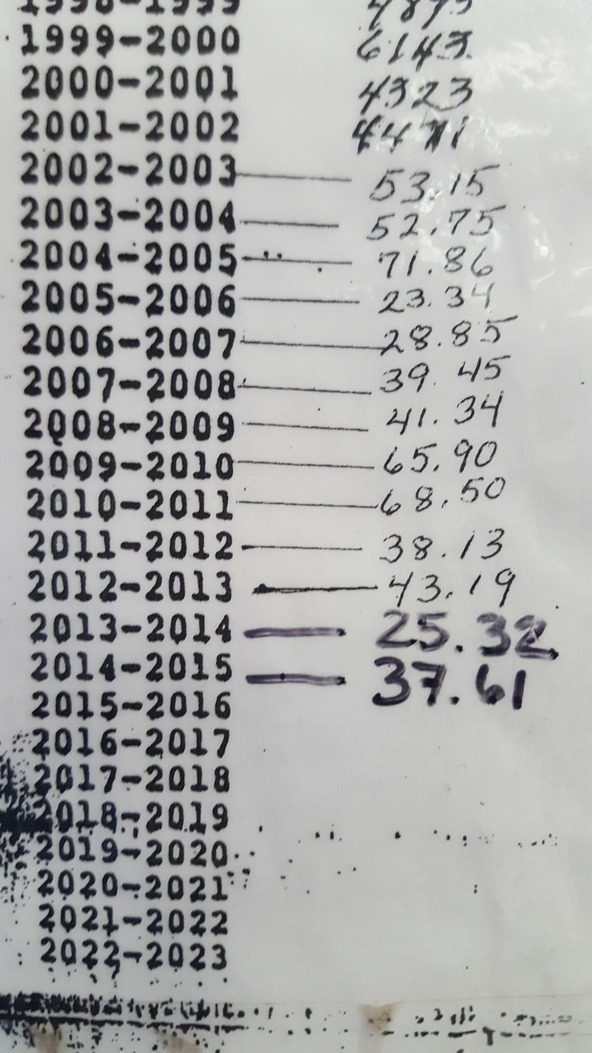 1998-1999 4873
1999-2000 6143
2000-2001 4323
2001-2002 4471
2002-2003 53.15
2003-2004 52.75
2004-2005 71.86
2005-2006 23.34
2006-2007 28.85
2007-2008 39.45
2008-2009 41.34
2009-2010 65.90
2010-2011 68.50
2011-2012 38.13
2012-2013 43.19
2013-2014 25.32
2014-2015 37.61
2015-2016
2016-2017
2017-2018
2018-2019
2019-2020
2020-2021
2021-2022
2022-2023